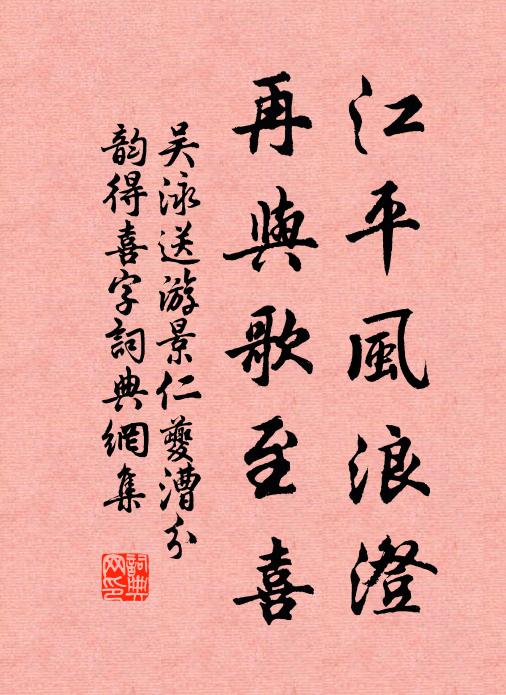 江平風浪澄
再與歌至喜
吴泳送游景仁夔漕分
韵得喜字詞典網集
詞典
网印